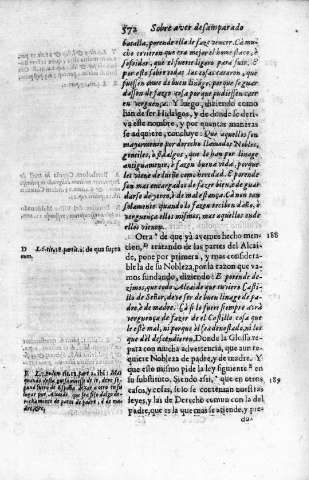 572 Sobre aver desamparado
batalla, perende ella le faze vencer. Ca mu-
cho tuvieron que era mejor el home flaco, è
sofridor, que el fuerte ligero para fuir. E
por esto sobre todas las cosas cataron, que
fuessen omes de buen linage, porque se guar-
dassen de fazer cosa porque pudiessen caer
en verguença. Y luego, diziendo como
han de ser Hidalgos, y de donde se deri-
va este nombre, y por quantas maneras
se adquiere, concluye: Que aquellos son
mayormente por derecho llamados Nobles,
gentiles, è fidalgos, que lo han por linage
antiguamente, è fazen buena vida, porque
les viene de lueñe como heredad. E porende
son mas encargados de fazer bien, è de guar-
darse de yerro, è de mal estança. Cà non tan
solamente quando lo fazen reciben daño, è
vergüença ellos mismos, mas aquellos onde
ellos vienen.
Otra D de que yà avemos hecho men- 188
cion, tratando de las partes del Alcai-
de, pone por primera, y mas considera-
ble la de su Nobleza, por la razon que va-
mos fundando, diziendo: E porende de-
zimos, que todo Alcaide que tuviere Casti-
llo de Señor, deve ser de buen linage de pa-
dre, è de madre. Cà si lo fuere siempre avrà
verguença de fazer de el Castillo cosa que
le estè mal, ni porque èl sea denostado, ni los
que dèl descendieren. Donde la Glossa re-
para con mucha advertencia, que aun re-
quiere Nobleza de padre, y de madre. Y
que esto mismo pide la ley siguiente E en
su substituto. Siendo assi, que en otros 189
casos, y cosas, solo se contentan nuestras
leyes, y las de Derecho comun con la del
padre, que es la que mas se atiende, y pre-
du-
D L. 6. tit. 18. partit. 2. de qua supra
num.